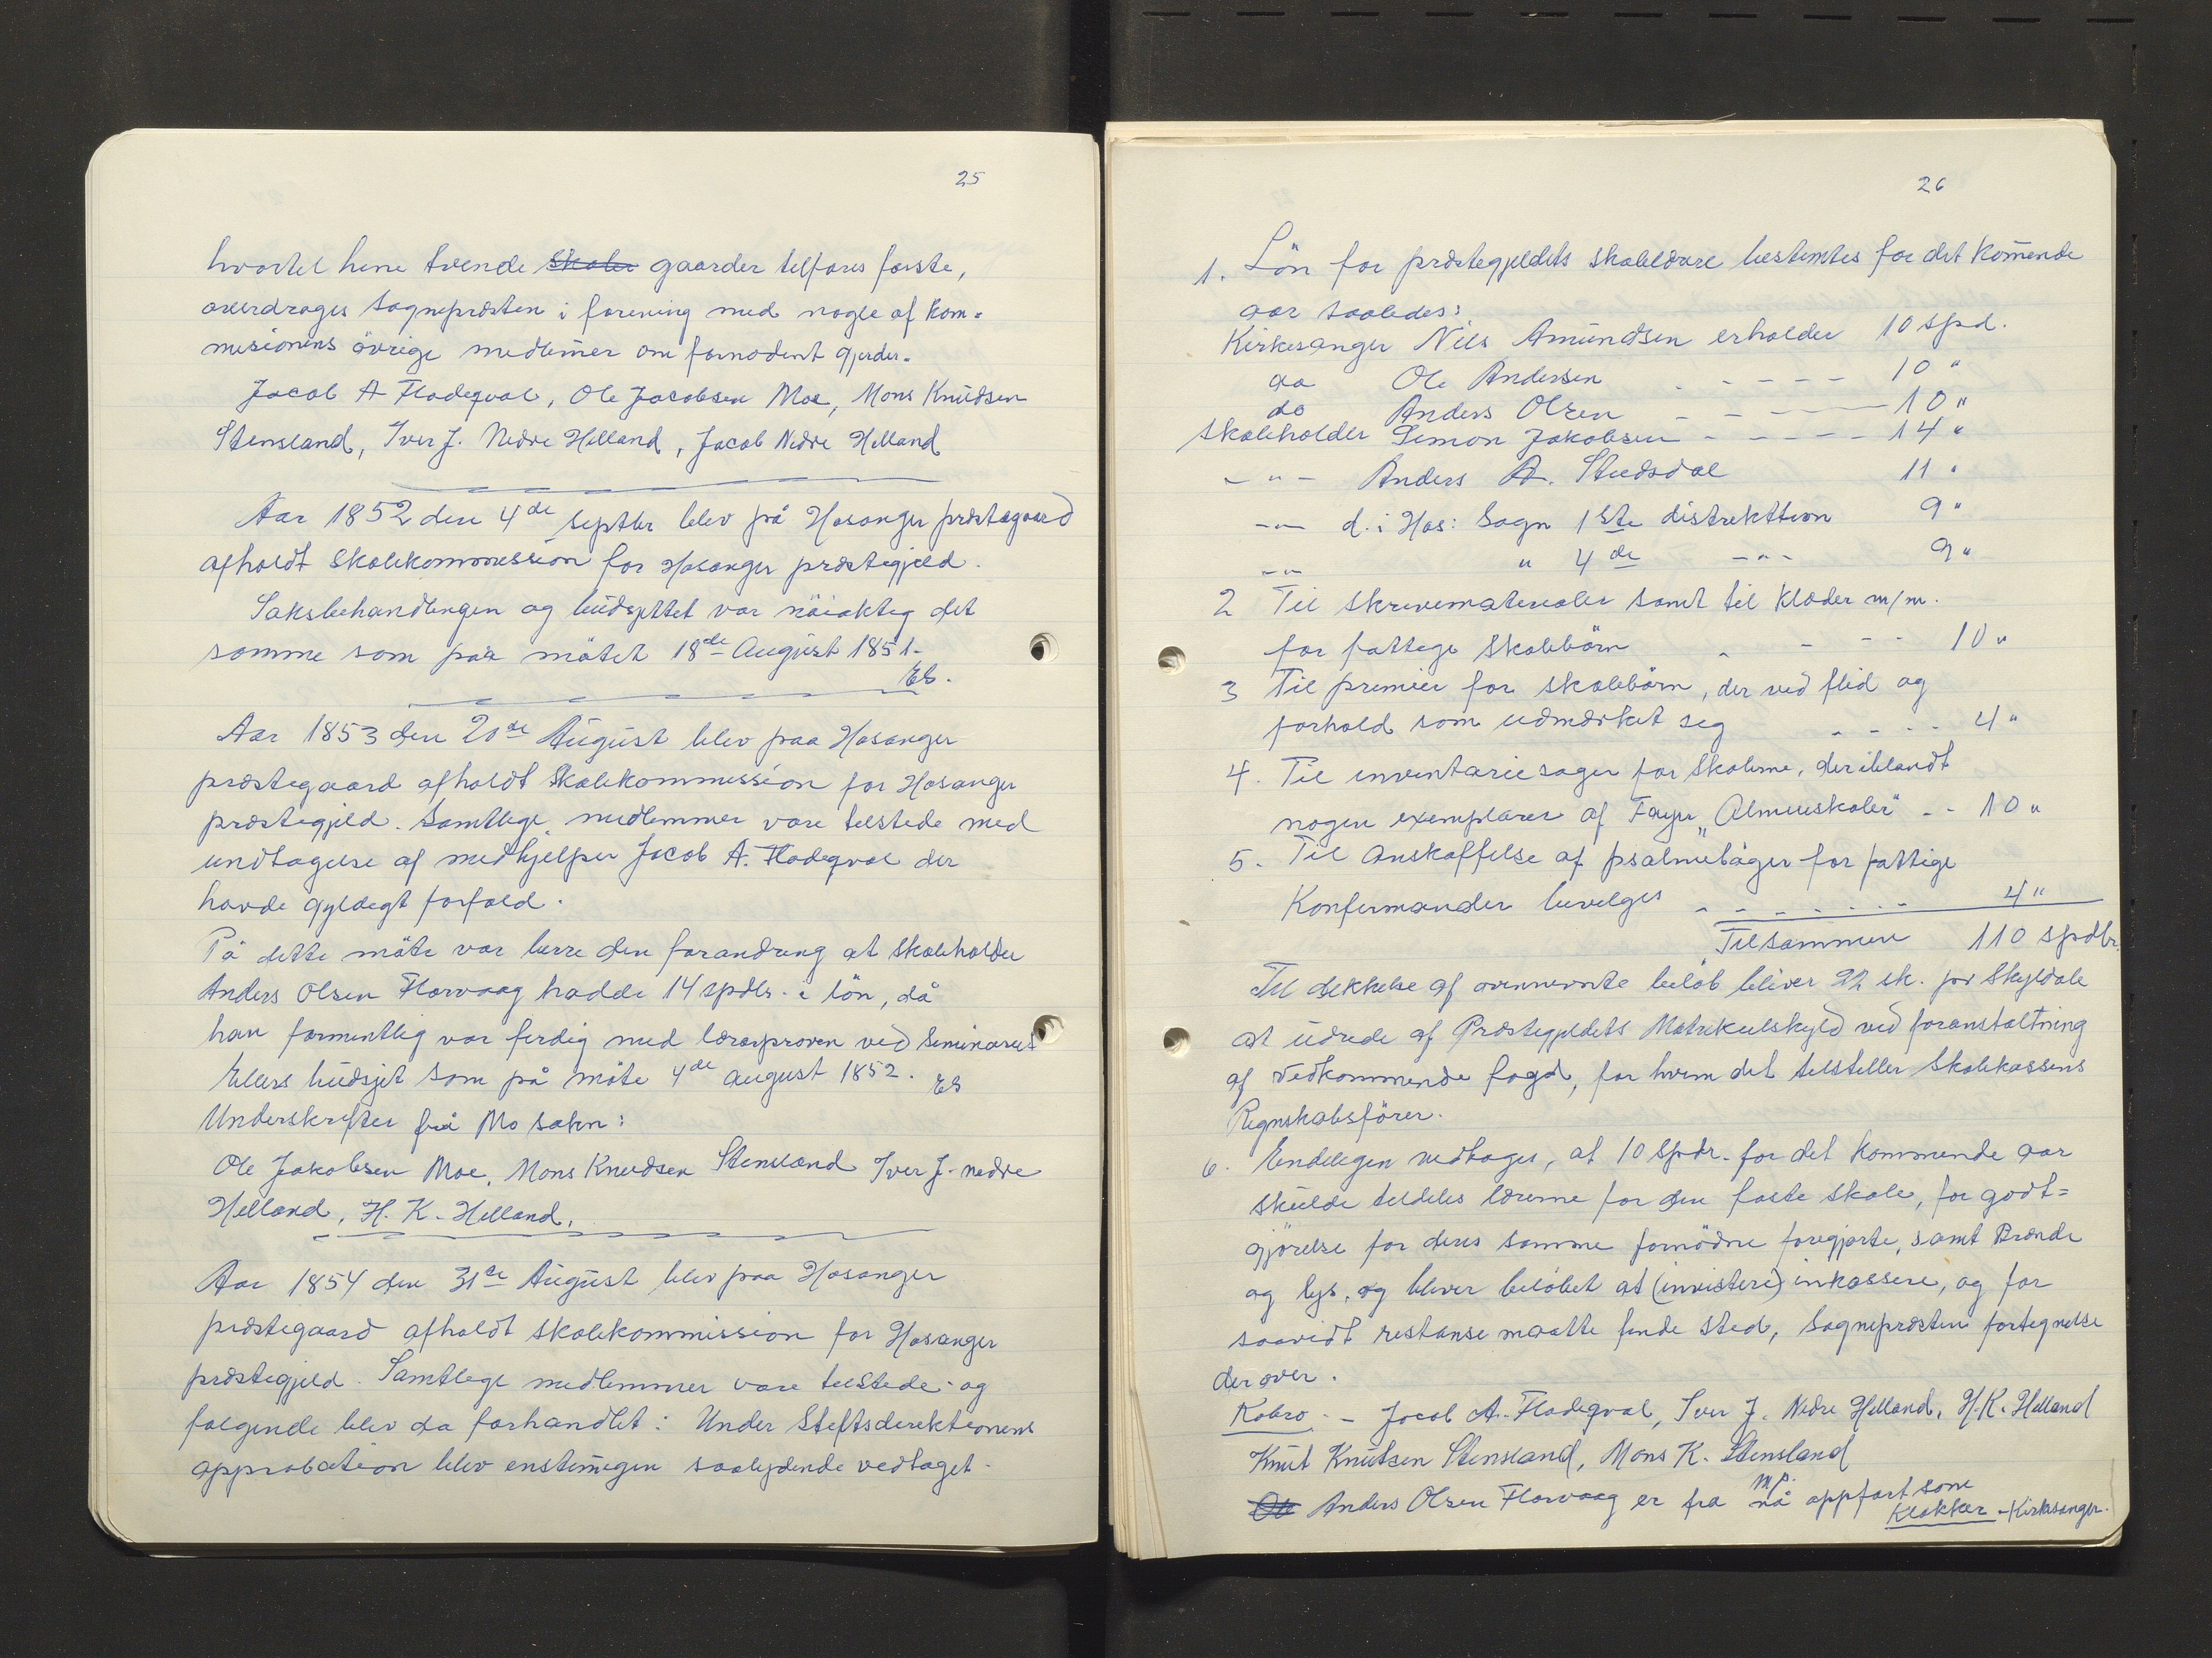 25
hvortel hine tvende skoler gaarder telfares forste,
overdrages Sogneprosten i forening med nogle af kom-
misionens övrige medlemer om fornodent gjerder.
Jacob A Fladeqval, Ole Jacobsen Moe, Mons Knudsen
Stensland, Iver J. Nedre Helland, Jacob Nedre Helland
Aar 1852 den 4de septbr blev på Hosanger prostegaard
afholdt skolekommission for Hosanger prostegjeld.
Saksbehandlingen og budsjettet var nöiaktig det
somme som paa mötet 18de August 1851.
Es.
Aar 1853 den 20de August blev paa Hosanger
prostegaard afholdt skolekommission for Hosanger
prostegjeld. Samtlige medlemmer vare telstede med
undtagelse af medhjelper Jacob A. Fladeqval der
havde gyldigt forfald.
På dette möte var berre den forandring at skoleholder
Anders Olsen Florvaag hadde 14 spdlr. i lön, då
han formentlig var ferdig med lærarproven ved Seminaret
Ellers budsjet som på möte 4de august 1852. Es
Underskrifter frå Mo sokn:
Ole Jakobsen Moe, Mons Knudsen Stensland Iver J. nedre
Helland, H. K. Helland.
Aar 1854 den 31te August blev paa Hosanger
prostegaard afholdt skolekommission for Hosanger
prostegjeld. Samtlege medlemmer vare telstede og
folgende blev da forhandlet: Under Stiftsdirektionens
approbation blev enstemigen saalydende vedtaget.
26
1. Lön for prostegjeldets skolelærare bestemtes for det komende
aar saaledes:
Kirkesanger Nils Amundsen erholder 10 spd.
do Ole Andersen - - - - - 10 "
do Anders Olsen - - - - 10 "
skoleholder Simon Jakobsen - - - - - 14 "
- " - Anders A. Studsdal 11 "
- " - d. i Hos: Sogn 1ste distrikttion 9 "
- " - " 4de - " - 9 "
2 Til skrivematerialer samt til klæder m/m.
for fattige skolebörn - - - 10 "
3 Til premier for skolebörn, der ved flid og
forhold som udmærket seg - - - - 4 "
4. Til inventariesager for skolerne, deriblandt
nogen exemplarer af Fayes „Almueskoler" - - 10 "
5. Til anskaffelse af psalmebåger for fattige
Konfirmander bevelges - - - - - - - - 4 "
Tilsammen 110 spdlr.
Til dekkelse af ovennevnte belöb bliver 22 sk. pr Skyldale
at udrede af Prostegjeldets Matrikulskyld ved foranstaltning
af vedkommende fogd, for hvem det telsteller Skolekassens
Regnskabsförer.
6. Endeligen vedtages, at 10 Spdr. for det kommende aar
skulde teldeles lærerne for den faste skole, for godt=
gjörelse for deres samme fornödne foregjorte, samt Brænde
og lys, og bliver belöbet at (investere) inkassere, og for
saavidt restanse maatte finde sted, Sogneprosten fortegnelse
derover.
Kobro. - Jacob A. Fladeqval, Iver J. Nedre Helland, H. K. Helland
Knut Knutsen Stensland, Mons K. Stensland
mp.
Ole Anders Olsen Florvaag er fra nå oppfört som
Klokker - Kirkesanger.